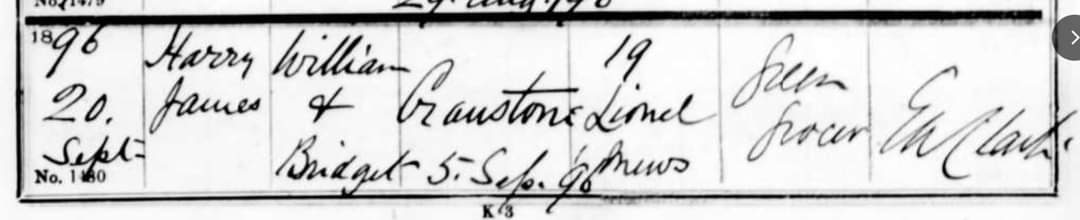 No. 1479
29. Aug. 96
1896 Harry William 19 Green
20. James & Cranstone Lionel Grocer E A Clark
Sept Bridget 5. Sep. 96 Mews
No. 1480
K 3